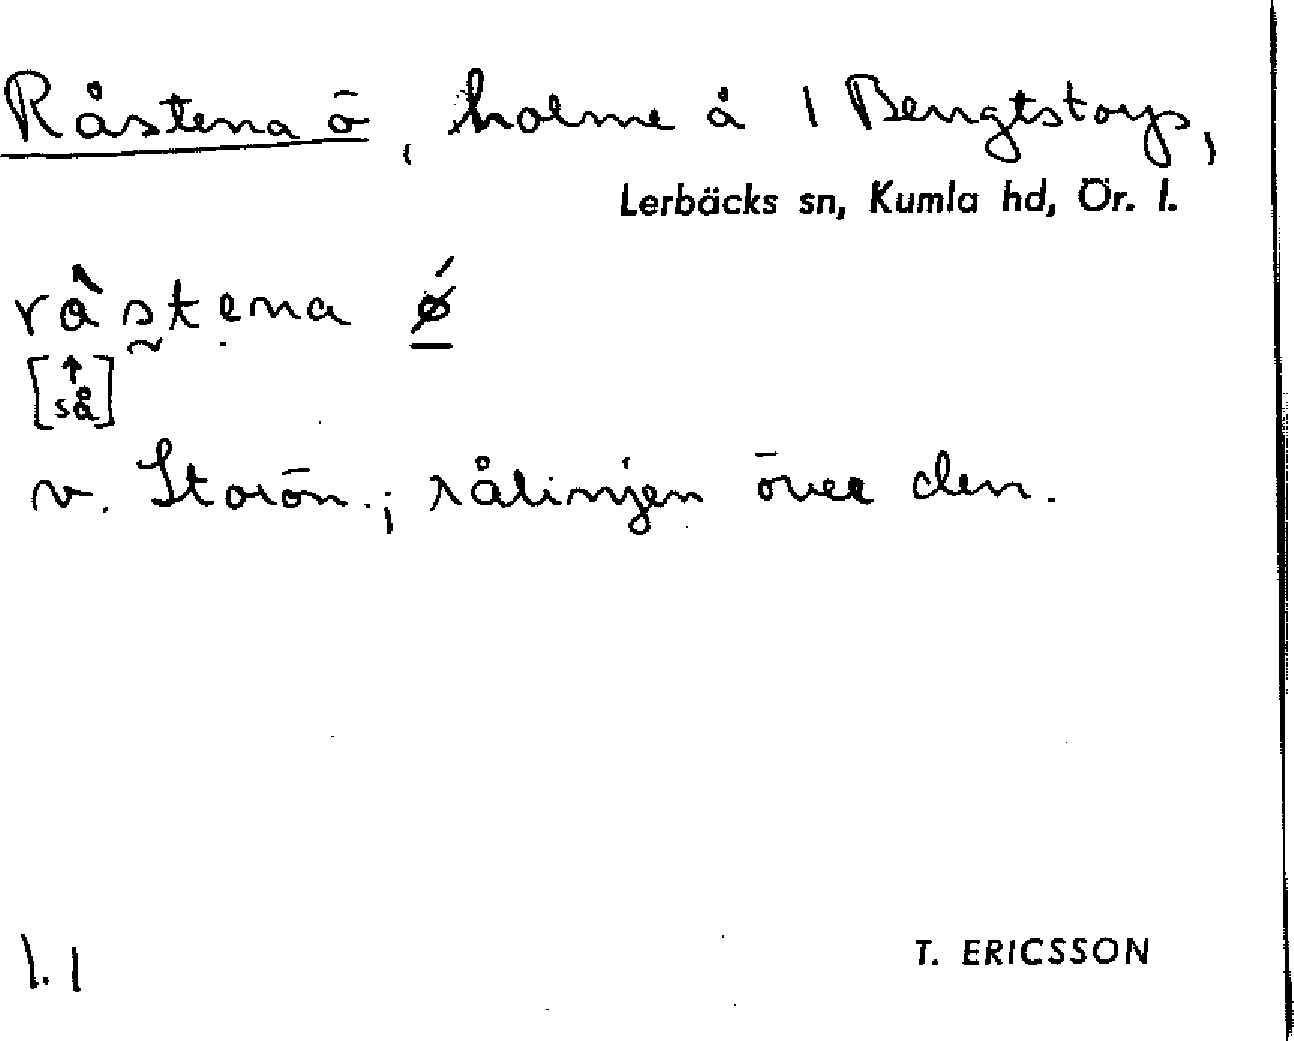 Råstena ö, holme å 1 Bengtstorp,
Lerbäcks sn, Kumla hd, Ör. l.
råstena ø
[så]
v. Storön.; rålinjen över den.
1.1
T. ERICSSON